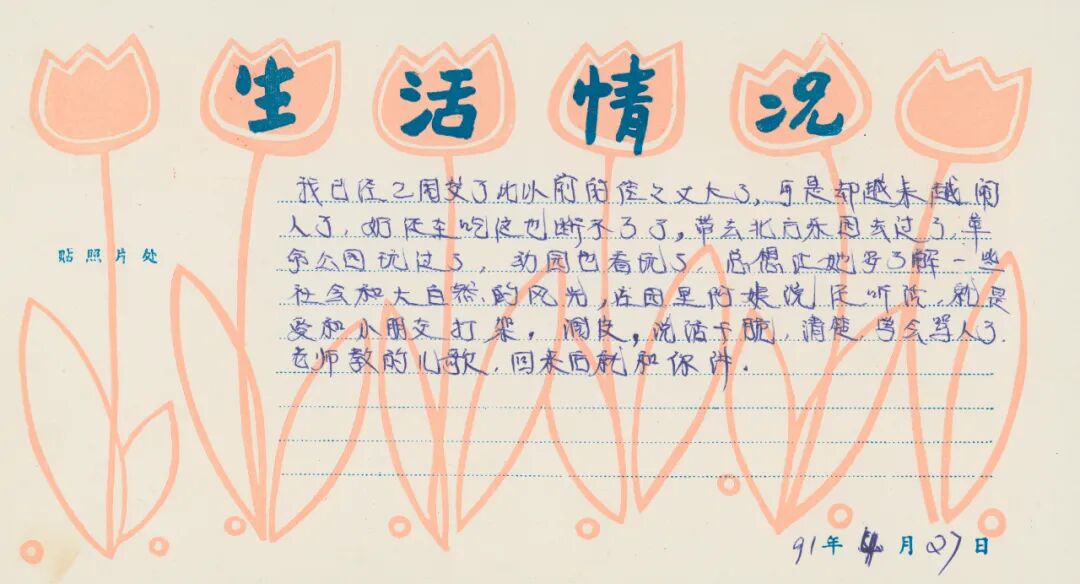 生活情况
我已经2周岁了比以前的个又大了,可是却越来越闹
人了,奶还在吃,也断不了,带去北方乐园去过了,革
命公园玩过了,动园也看玩了,总想让她多了解一些
社会和大自然的风光,在园里阿姨说还听说,就是
爱和小朋友打架,调皮,说话干脆,清楚,学会骂人了
老师教的儿歌,回来后就和你讲.
贴照片处
91年4月27日